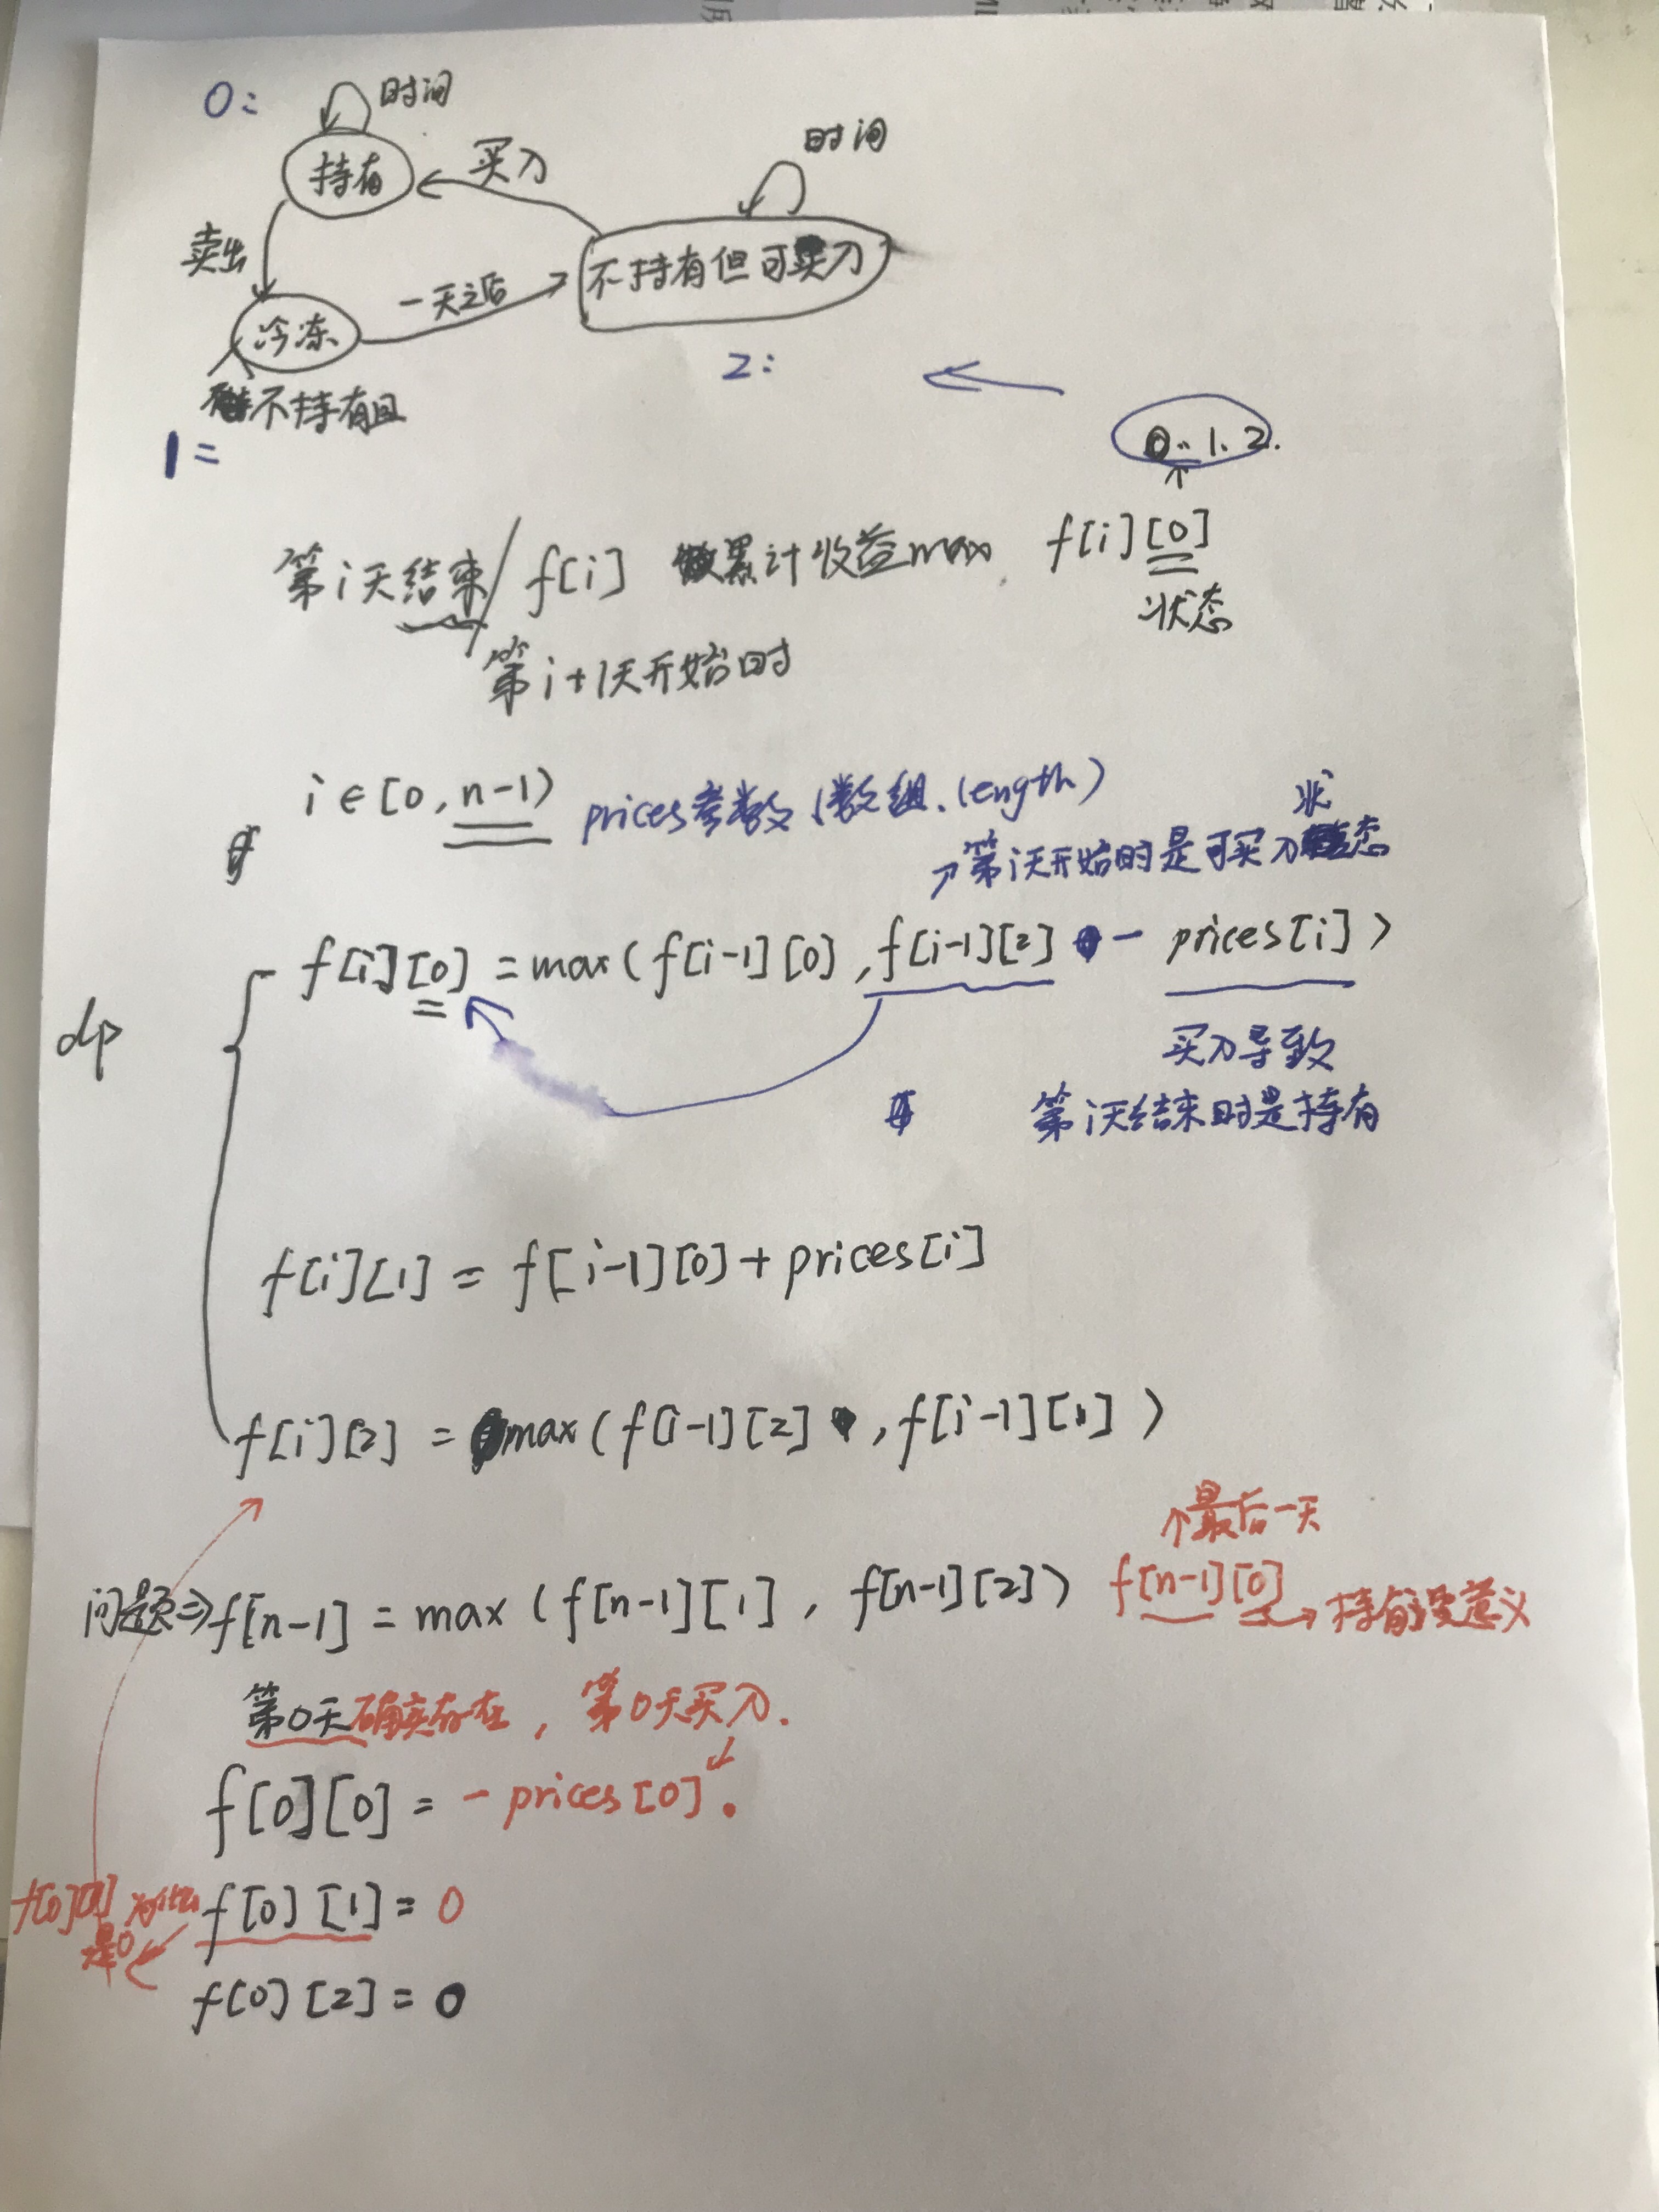 0:
时间
持有
买入
时间
卖出
不持有但可买入
一天之后
冷冻
不持有且
1=
2:
0. 1. 2.
第i天结束/ f[i] 累计收益max f[i][0]
状态
第i+1天开始时
i∈[0, n-1) prices参数(数组.length)
第i天开始时是可买入状态
dp
f[i][0] = max(f[i-1][0], f[i-1][2] - prices[i])
买入导致
第i天结束时是持有
f[i][1] = f[i-1][0] + prices[i]
f[i][2] = max(f[i-1][2], f[i-1][1])
最后一天
问题⇒f[n-1] = max(f[n-1][1], f[n-1][2]) f[n-1][0] → 持有没意义
第0天确实存在, 第0天买入.
f[0][0] = - prices[0].
f[0][1] 为什么是0
f[0][1] = 0
f[0][2] = 0